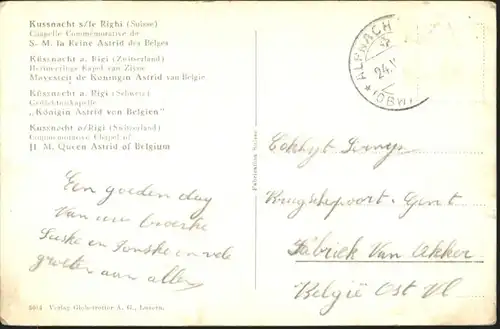 Kussnacht s/le Righi (Suisse)
Chapelle Commémorative de
S. M. la Reine Astrid des Belges
Küssnacht a. Rigi (Zwitzerland)
Herinnerings Kapel van Zijne
Mayesteit de Koningin Astrid van Belgie
Küssnacht a. Rigi (Schweiz)
Gedächtniskapelle
„Königin Astrid von Belgien"
Kussnacht o/Rigi (Switzerland)
Commemorative Chapel of
H. M. Queen Astrid of Belgium
Een goeden dag
Van uw broerke
en en vele
groeten aan allen
6014 - Verlag Globetrotter A. G., Luzern.
Fabrication Suisse
ALPNACH
24.
(OBW)
Gent
Fabriek Van Akker
België Ost Vl